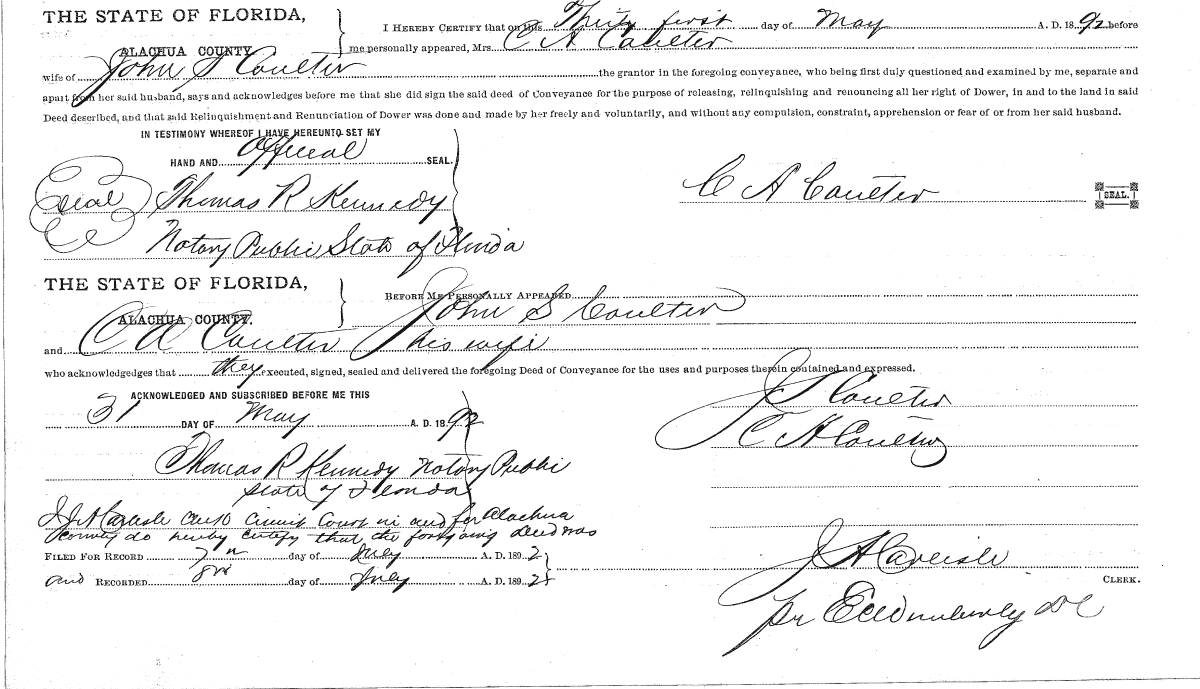 THE STATE OF FLORIDA,
ALACHUA COUNTY
I HEREBY CERTIFY that on this Thirty first day of May A. D. 1892 before
me personally appeared, Mrs. C A Coulter
wife of John S Coulter the grantor in the foregoing conveyance, who being first duly questioned and examined by me, separate and
apart from her said husband, says and acknowledges before me that she did sign the said deed of Conveyance for the purpose of releasing, relinquishing and renouncing all her right of Dower, in and to the land in said
Deed described, and that said Relinquishment and Renunciation of Dower was done and made by her freely and voluntarily, and without any compulsion, constraint, apprehension or fear of or from her said husband.
IN TESTIMONY WHEREOF I HAVE HEREUNTO SET MY
HAND AND Official SEAL.
Seal Thomas R Kennedy
C A Coulter SEAL.
Notary Public State of Florida
THE STATE OF FLORIDA,
ALACHUA COUNTY.
BEFORE ME PERSONALLY APPEARED
John S Coulter
and C A Coulter his wife
who acknowledgedges that they executed, signed, sealed and delivered the foregoing Deed of Conveyance for the uses and purposes therein contained and expressed.
ACKNOWLEDGED AND SUBSCRIBED BEFORE ME THIS
31 DAY OF May A. D. 1892
J S Coulter
C A Coulter
Thomas R Kennedy Notary Public
State of Florida
I J A Carlisle Clerk Circuit Court in and for Alachua
County do hereby certify that the foregoing deed was
FILED FOR RECORD 7th day of July A. D. 1892
and RECORDED 8th day of July A. D. 1892
J A Carlisle
CLERK.
pr DC